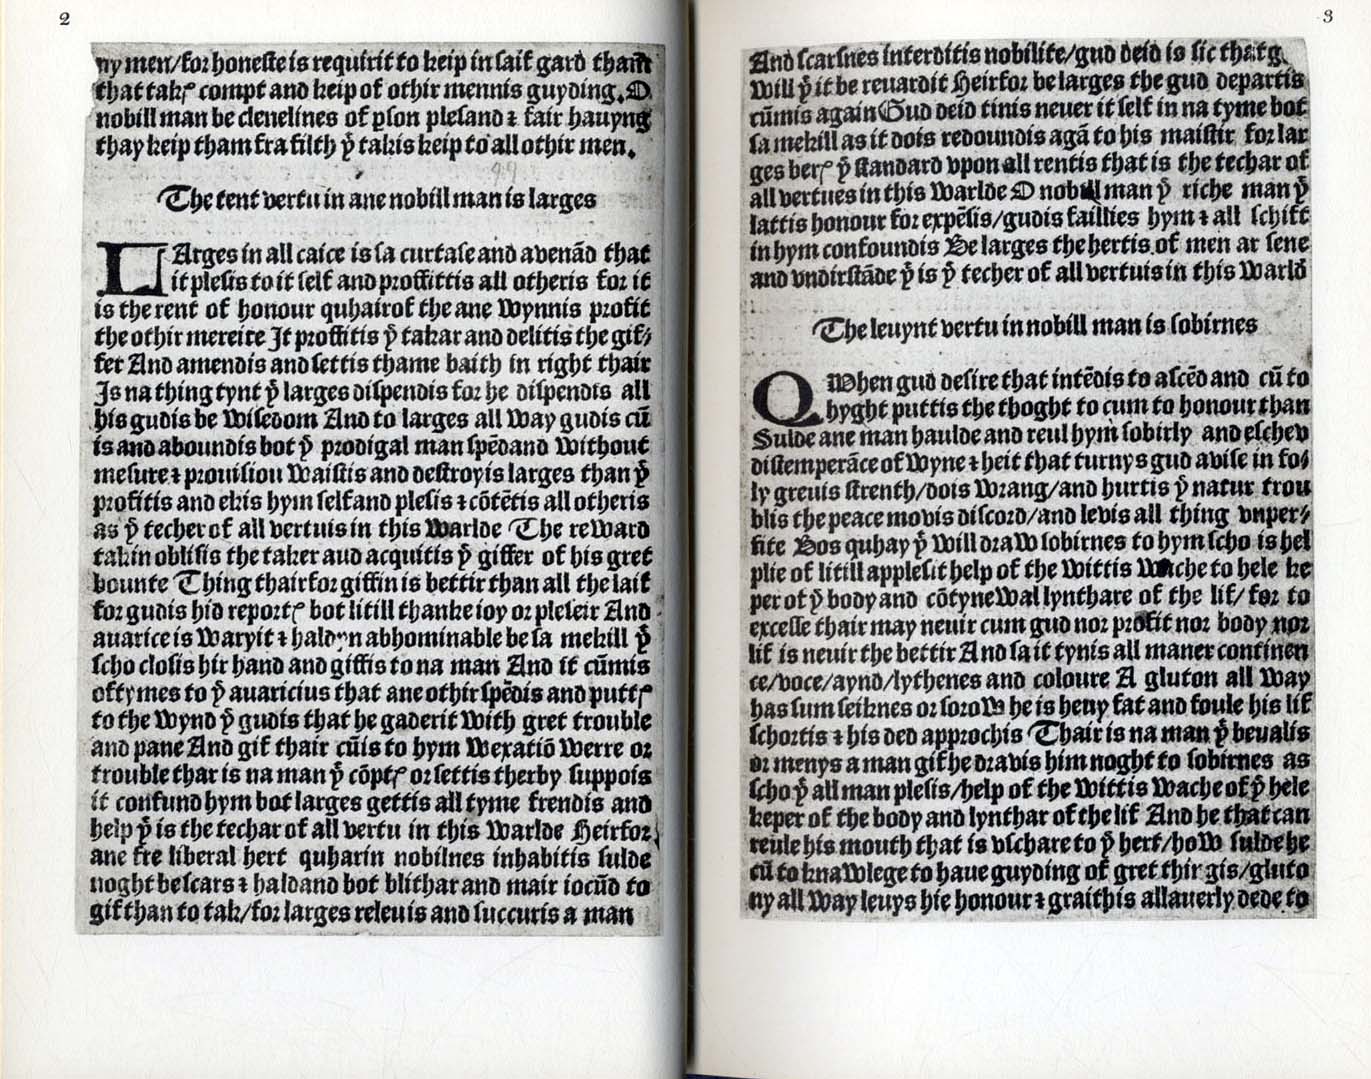 2
ny men/for honeste is requirit to keip in saif gard tham
that takꝭ compt and keip of othir mennis guyding. O
nobill man be clenelines of ꝑson plesand ⁊ fair hauyng
thay keip tham fra filth yͭ takis keip to all othir men.
The tent vertu in ane nobill man is larges
LArges in all caice is sa curtase and avenād that
it plesis to it self and proffittis all otheris for it
is the rent of honour quhairof the ane wynnis profit
the othir mereite It proffitis yͭ takar and delitis the gif⸗
fer And amendis and settis thame baith in right thair
Is na thing tynt yͭ larges dispendis for he dispendis all
his gudis be wisedom And to larges all way gudis cū
is and aboundis bot yͭ prodigal man spēdand without
mesure ⁊ prouisiou waistis and destroyis larges than yͭ
profitis and ekis hym self and plesis ⁊ cōtētis all otheris
as yͭ techer of all vertuis in this warlde The reward
takin oblisis the taker aud acquitis yͭ giffer of his gret
bounte Thing thairfor giffin is bettir than all the laif
for gudis hid reportꝭ bot litill thanke ioy or pleseir And
auarice is waryit ⁊ haldyn abhominable be sa mekill yͭ
scho closis hir hand and giffis to na man And it cūmis
oftymes to yͭ auaricius that ane othir spēdis and puttꝭ
to the wynd yͭ gudis that he gaderit with gret trouble
and pane And gif thair cūis to hym wexatiō werre or
trouble thar is na man yͭ cōptꝭ or settis therby suppois
it confund hym bot larges gettis all tyme frendis and
help yͭ is the techar of all vertu in this warlde Heirfor
ane fre liberal hert quharin nobilnes inhabitis sulde
noght be scars ⁊ haldand bot blithar and mair iocūd to
gif than to tak/for larges releuis and succuris a man
3
And scarsnes interditis nobilite/gud deid is sic that g
will yͭ it be reuardit Heirfor be larges the gud departis
cūmis again Gud deid tinis neuer it self in na tyme bot
sa mekill as it dois redoundis agā to his maistir for lar
ges berꝭ yͭ standard vpon all rentis that is the techar of
all vertues in this warlde O nobill man yͭ riche man yͭ
lattis honour for expēsis/gudis faillies hym ⁊ all schift
in hym confoundis Be larges the hertis of men ar sene
and vndirstāde yͭ is yͭ techer of all vertuis in this warld
The leuynt vertu in nobill man is sobirnes
QWhen gud desire that intēdis to ascēd and cū to
hyght puttis the thoght to cum to honour than
Sulde ane man haulde and reul hym sobirly and eschev
distemperāce of wyne ⁊ heit that turnys gud avise in fo⸗
ly greuis strenth/dois wrang/and hurtis yͭ natur trou
blis the peace movis discord/and levis all thing vnper⸗
fite Bos quhay yͭ will draw sobirnes to hym scho is hel
plie of litill applesit help of the wittis wache to hele ke
per of yͭ body and cōtynewal lynthare of the lif/for to
excesse thair may neuir cum gud nor profit nor body nor
lif is neuir the bettir And sa it tynis all maner continen
ce/voce/aynd/lythenes and coloure A gluton all way
has sum seiknes or sorow he is heuy fat and foule his lif
schortis ⁊ his ded approchis Thair is na man yͭ bevalis
or menys a man gif he dravis him noght to sobirnes as
scho yͭ all man plesis/help of the wittis wache of yͭ hele
keper of the body and lynthar of the lif And he that can
reule his mouth that is vschare to yͭ hert/how sulde he
cū to knawlege to haue guyding of gret thir gis/gluto
ny all way leuys hie honour ⁊ graithis allauerly dede to